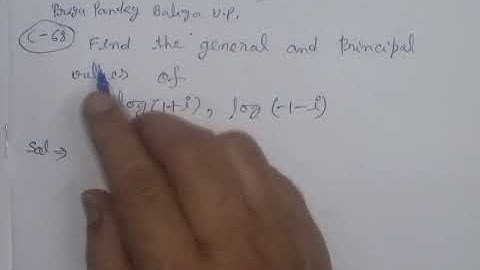 Priya Pandey Baliya U.P.
C-68 Find the general and principal
values of
log(1+i), log(-1-i)
Sol ⇒